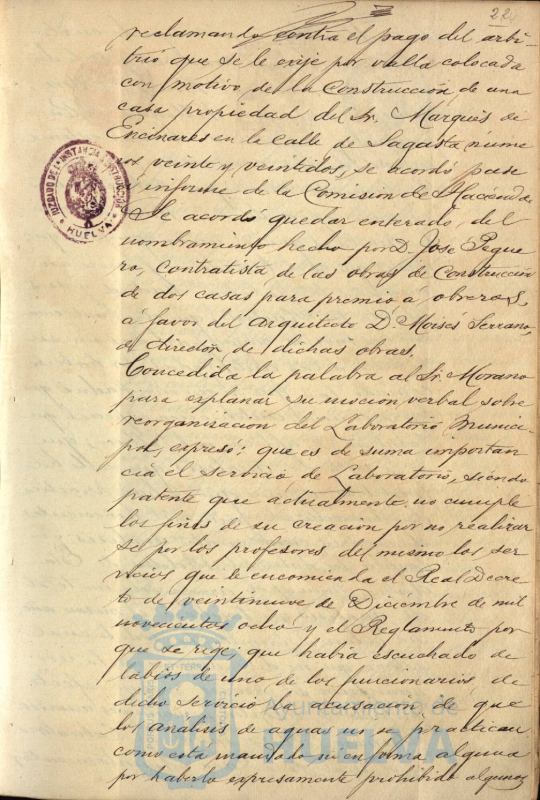 224
reclamando contra el pago del arbi-
trio que se le exije por valla colocada
con motivo de la Construcción de una
casa propiedad del Sr. Marqués de
Encinares en la calle de Sagasta núme
ros veinte y veintidos, se acordó pase
á informe de la Comision de Hacienda.
Se acordó quedar enterado, del
nombramiento hecho por D. José Pegue
ro, contratista de las obras de Construcción
de dos casas para premio á obreros,
á favor del Arquitecto D. Moisés Serrano,
director de dichas obras.
Concedida la palabra al Sr. Morano
para explanar su mocion verbal sobre
reorganización del Laboratorio Munici-
pal, expresó: que es de suma importan
cia el servicio de Laboratorio, siendo
patente que actualmente no cumple
los fines de su creacion por no realizar
se por los profesores del mismo los ser
vicios que le encomienda el Real Decre
to de veintinueve de Diciembre de mil
novecientos ocho y el Reglamento por
que se rige; que habia escuchado de
labios de uno de los funcionarios de
dicho servicio la acusación de que
los análisis de aguas no se practican
como esta mandado ni en forma alguna
por haberlo expresamente prohibido algunos
JUZGADO DE 1ª INSTANCIA INSTRUCCION
HUELVA
Ayuntamiento de
HUELVA